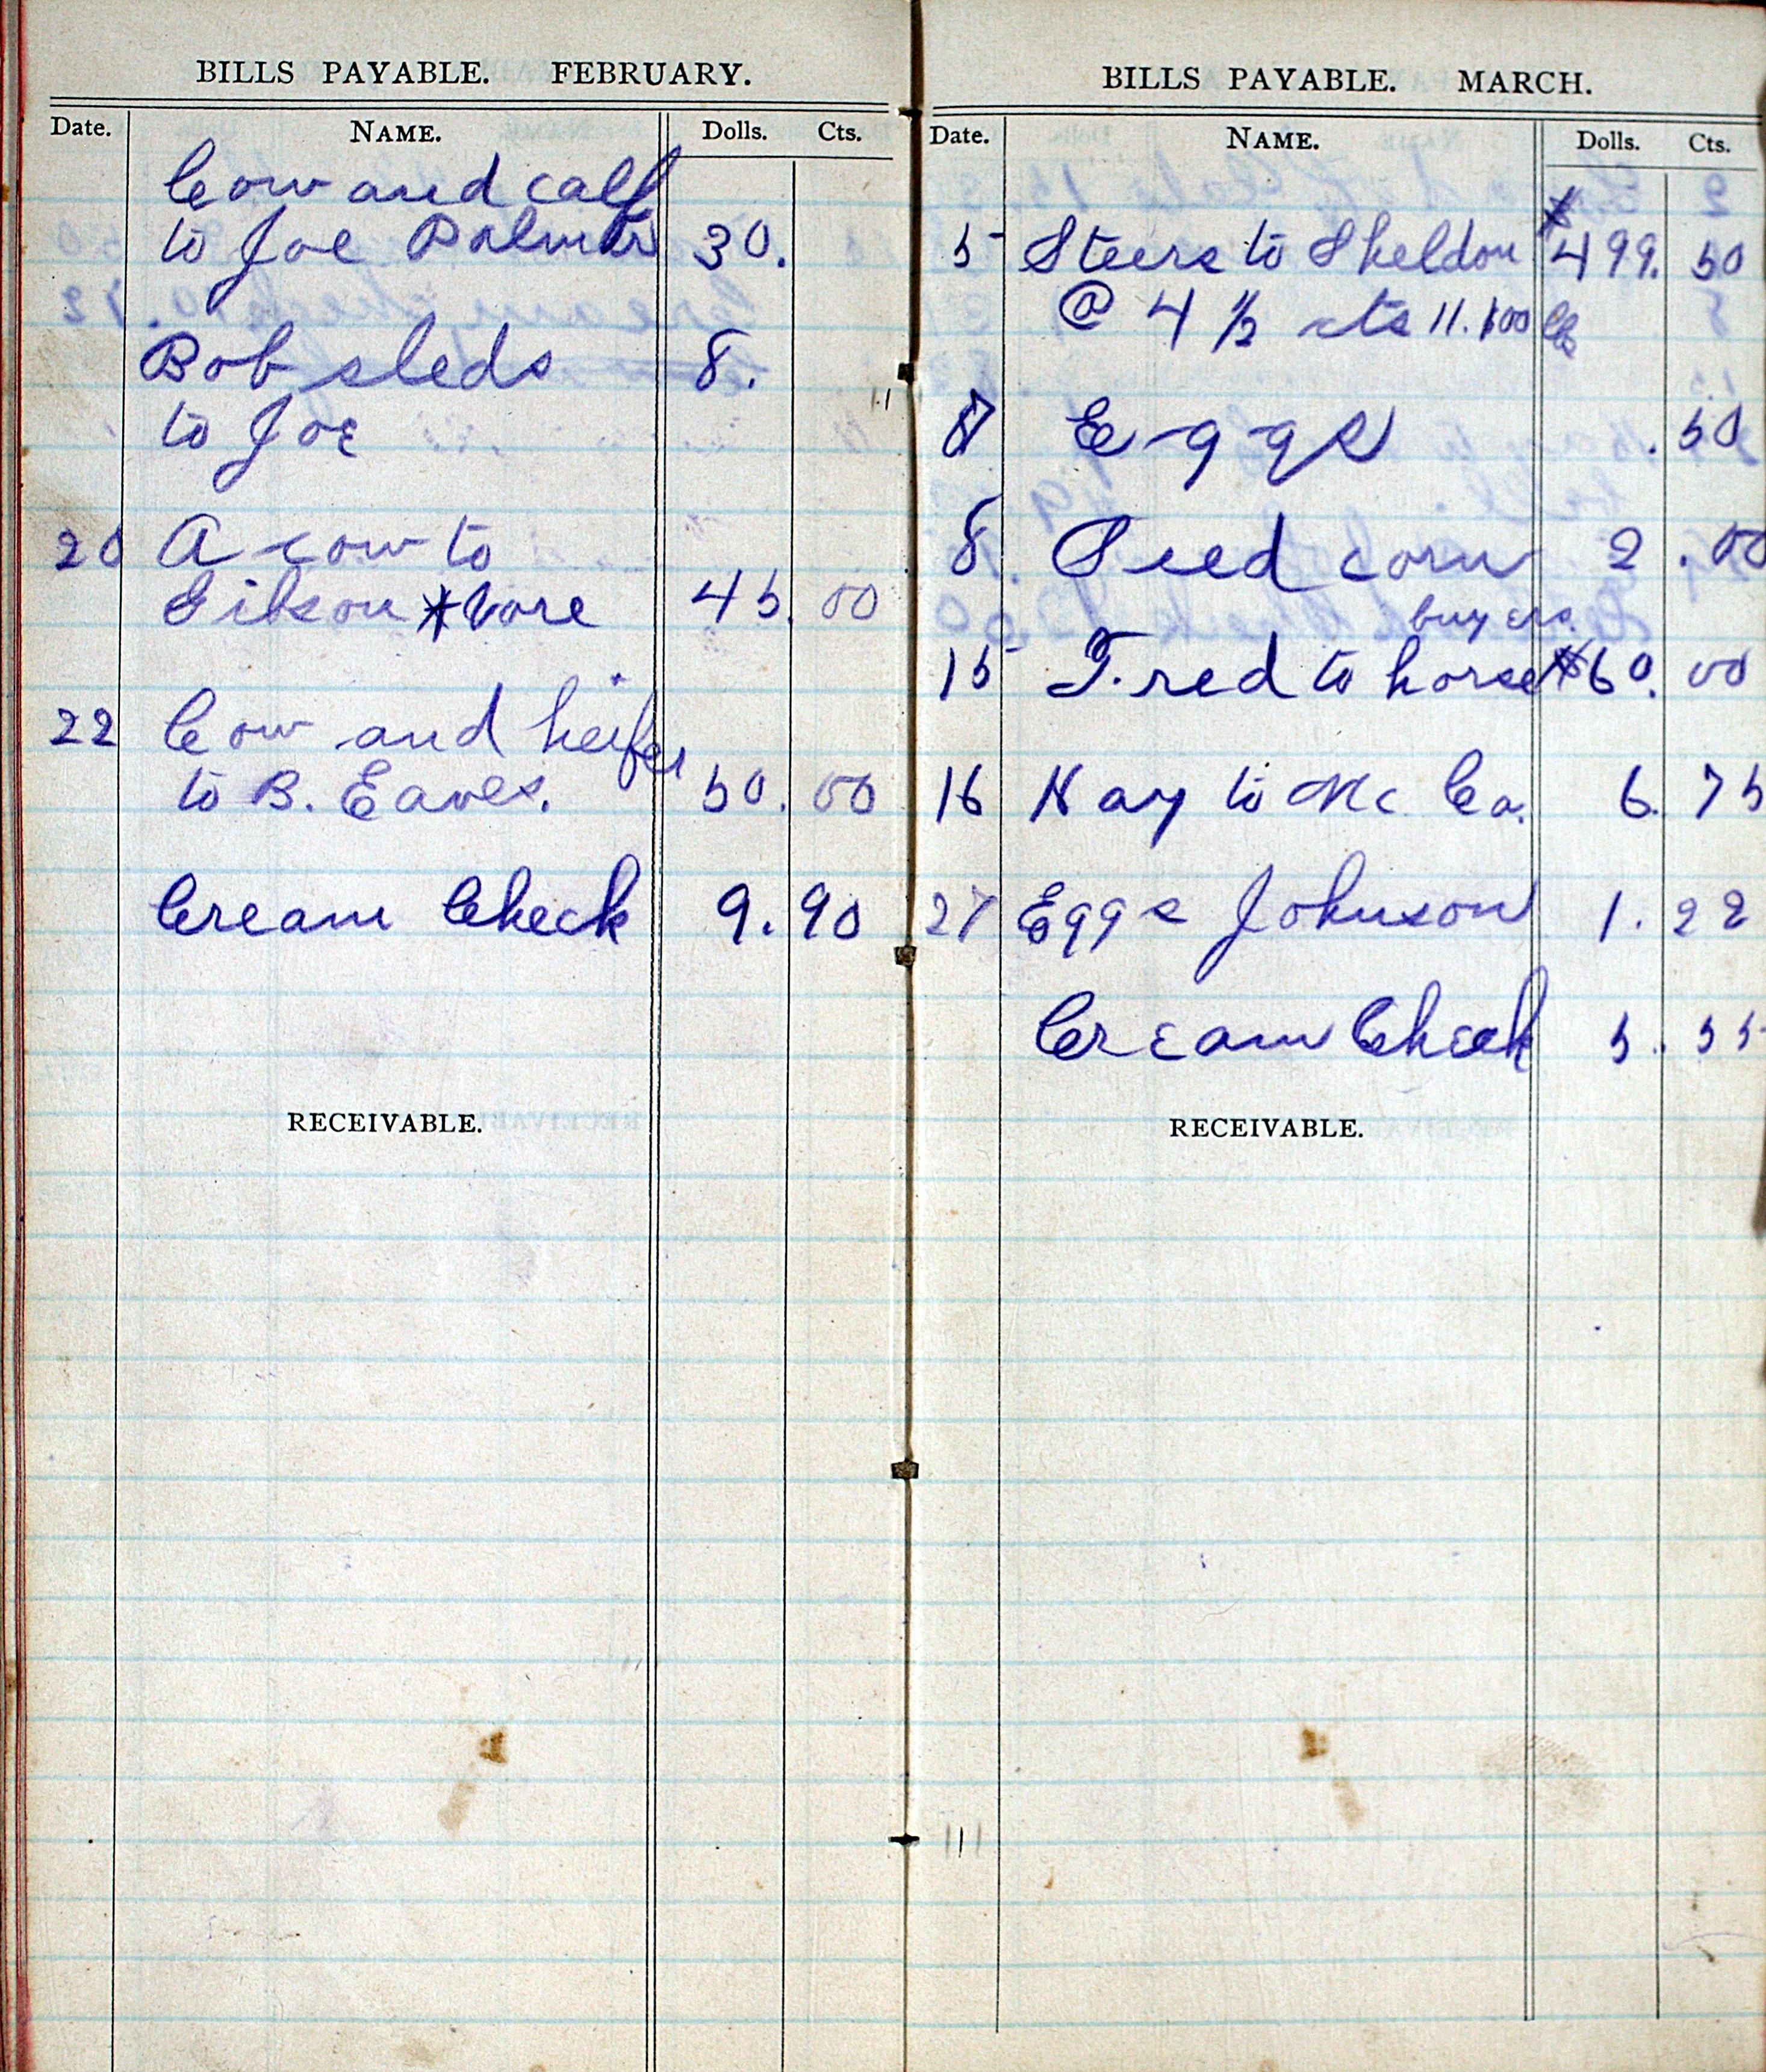 BILLS PAYABLE. FEBRUARY.
Date. NAME. Dolls. Cts.
Cow and calf
to Joe Palmer 30.
Bob sleds 8.
to Joe
20 A cow to
Gibson 45. 00
22 Cow and heifer
to B. Eaves. 50. 00
Cream Check 9. 90
RECEIVABLE.
BILLS PAYABLE. MARCH.
Date. NAME. Dolls. Cts.
5 Steers to Sheldon $499. 50
@ 4 1/2 cts 11.100 lbs
7 Eggs .50
8. Seed corn 2.00
buyers.
15 Fred to horse $60. 00
16 Hay to Mc Co. 6. 75
27 Eggs Johnson 1. 22
Cream Check 5. 55
RECEIVABLE.